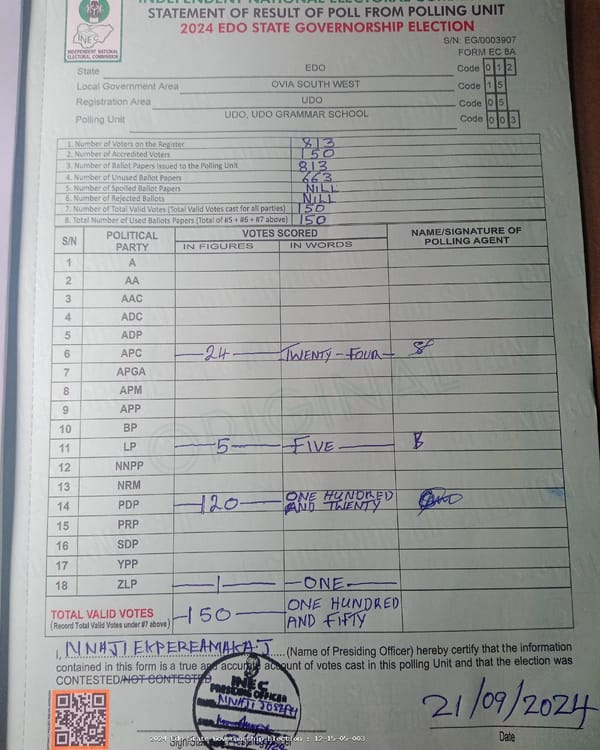 INDEPENDENT NATIONAL ELECTORAL
STATEMENT OF RESULT OF POLL FROM POLLING UNIT
2024 EDO STATE GOVERNORSHIP ELECTION
INEC
INDEPENDENT NATIONAL
ELECTORAL COMMISSION
S/N: EG/0003907
FORM EC 8A
State EDO Code 0 1 2
Local Government Area OVIA SOUTH WEST Code 1 5
Registration Area UDO Code 0 5
Polling Unit UDO, UDO GRAMMAR SCHOOL Code 0 0 3
1. Number of Voters on the Register 813
2. Number of Accredited Voters 150
3. Number of Ballot Papers Issued to the Polling Unit 813
4. Number of Unused Ballot Papers 663
5. Number of Spoiled Ballot Papers NILL
6. Number of Rejected Ballots NILL
7. Number of Total Valid Votes (Total Valid Votes cast for all parties) 150
8. Total Number of Used Ballots Papers (Total of #5 + #6 + #7 above) 150
S/N POLITICAL PARTY VOTES SCORED NAME/SIGNATURE OF POLLING AGENT
IN FIGURES IN WORDS
1 A
2 AA
3 AAC
4 ADC
5 ADP
6 APC 24 TWENTY-FOUR
7 APGA
8 APM
9 APP
10 BP
11 LP 5 FIVE
12 NNPP
13 NRM
14 PDP 120 ONE HUNDRED AND TWENTY
15 PRP
16 SDP
17 YPP
18 ZLP 1 ONE
ORIGINAL
TOTAL VALID VOTES 150 ONE HUNDRED
(Record Total Valid Votes under #7 above) AND FIFTY
I, NNAJI EKPEREAMAKA J .... (Name of Presiding Officer) hereby certify that the information
contained in this form is a true and accurate account of votes cast in this polling Unit and that the election was
CONTESTED/NOT CONTESTED
INEC
PRESIDING OFFICER
NNAJI JOSEPH
21/09/2024
Date
2024 Edo State Governorship Election : 12-15-05-003